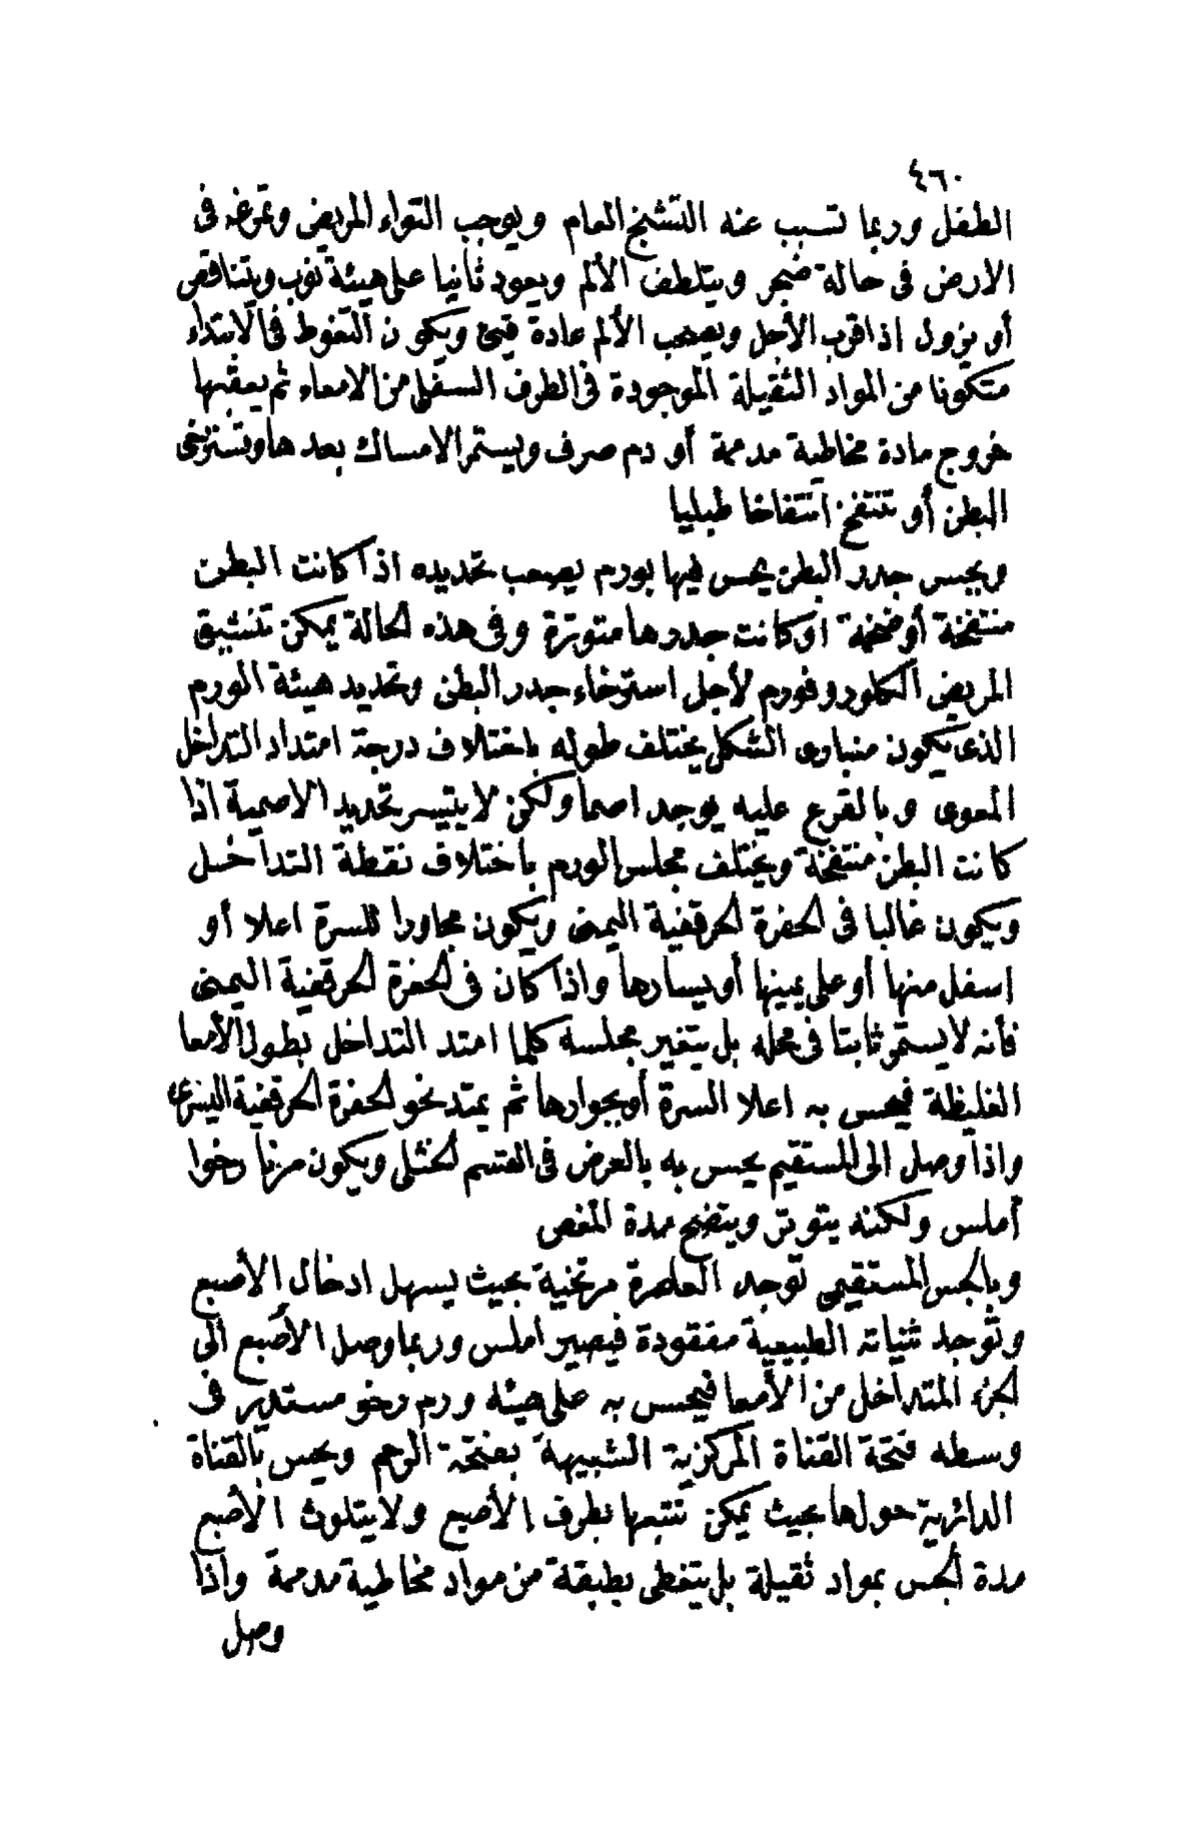 ٤٦٠
الطفل وربما تسبب عنه التشنج العام ويوجب التواء المريض وتمرغه فى
الارض فى حالة ضجر ويتلطف الألم ويعود ثانيا على هيئة نوب ويتناقص
أو يزول اذا قرب الأجل ويصحب الألم عادة قيئ ويكون التغوط فى الابتداء
متكونا من المواد الثقيلة الموجودة فى الطرف السفلى من الامعاء ثم يعقبها
خروج مادة مخاطية مدممة أو دم صرف ويستمر الامساك بعدها وتسترخى
البطن أو تنتفخ انتفاخا طبليا
وبجس جدر البطن يحس فيها بورم يصعب تحديده اذا كانت البطن
منتفخة أو ضخمة او كانت جدرها متوترة وفى هذه الحالة يمكن تنشيق
المريض الكلوروفورم لأجل استرخاء جدر البطن وتحديد هيئة الورم
الذى يكون منبارى الشكل يختلف طوله باختلاف درجة امتداد التداخل
المعوى وبالقرع عليه يوجد اصما ولكن لا يتيسر تحديد الاصمية اذا
كانت البطن منتفخة ويختلف مجلس الورم باختلاف نقطة التداخل
ويكون غالبا فى الحفرة الحرقفية اليمنى ويكون مجاورا للسرة اعلا أو
اسفل منها أو على يمينها أو يسارها واذا كان فى الحفرة الحرقفية اليمنى
فأنه لا يستمر ثابتا فى محله بل يتغير مجلسه كلما امتد التداخل بطول الأمعا
الغليظة فيحس به اعلا السرة أو بجوارها ثم يمتد نحو الحفرة الحرقفية اليسرى
واذا وصل الى المستقيم يحس به بالعرض فى القسم الخثلى ويكون مرنا رخوا
أملس ولكنه يتوتر ويتضح مدة المغص
وبالجس المستقيمى توجد العاصرة مرتخية بحيث يسهل ادخال الأصبع
وتوجد ثنياته الطبيعية مفقودة فيصير املس وربما وصل الأصبع الى
الجزء المتداخل من الأمعا فيحس به على هيئة ورم رخو مستدير فى
وسطه فتحة القناة المركزية الشبيهة بفتحة الرحم ويحس بالقناة
الدائرية حولها بحيث يمكن تتبعها بطرف الأصبع ولا يتلوث الأصبع
مدة الجس بمواد ثقيلة بل يتغطى بطبقة من مواد مخاطية مدممة واذا
وصل